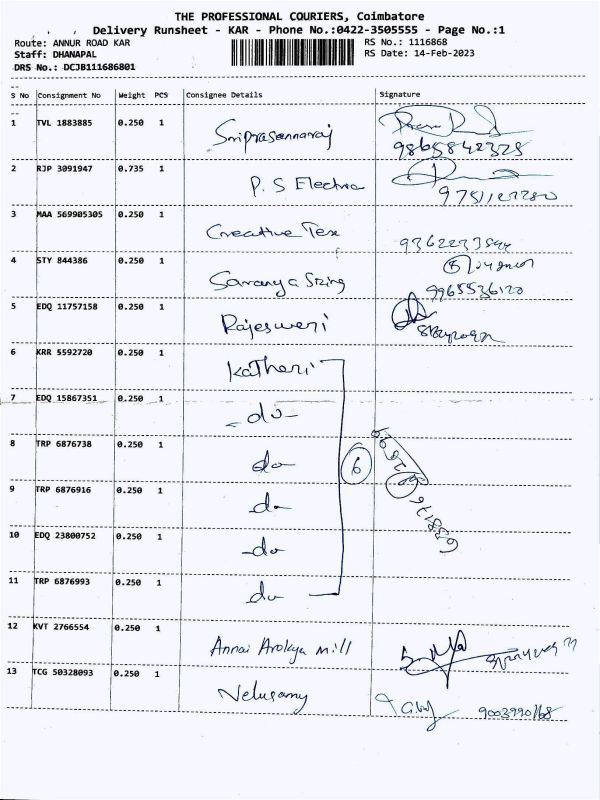 THE PROFESSIONAL COURIERS, Coimbatore
Delivery Runsheet - KAR - Phone No.:0422-3505555 - Page No.:1
Route: ANNUR ROAD KAR RS No.: 1116868
Staff: DHANAPAL RS Date: 14-Feb-2023
DRS No.: DCJB111686801
S No Consignment No Weight PCS Consignee Details Signature
1 TVL 1883885 0.250 1 Sriprasannaraj
9865842325
2 RJP 3091947 0.735 1 P. S Electra
3 MAA 569905305 0.250 1 Creative Tex
4 STY 844386 0.250 1 Saranya Sizing
9965536120
5 EDQ 11757158 0.250 1 Rajesweri
6 KRR 5592720 0.250 1 Katheri
7 EDQ 15867351 0.250 1 -do-
8 TRP 6876738 0.250 1 do 6
9 TRP 6876916 0.250 1 do
10 EDQ 23800752 0.250 1 -do-
11 TRP 6876993 0.250 1 do
12 KVT 2766554 0.250 1 Annai Arokya mill
13 TCG 50328093 0.250 1 Velusamy
9003990168